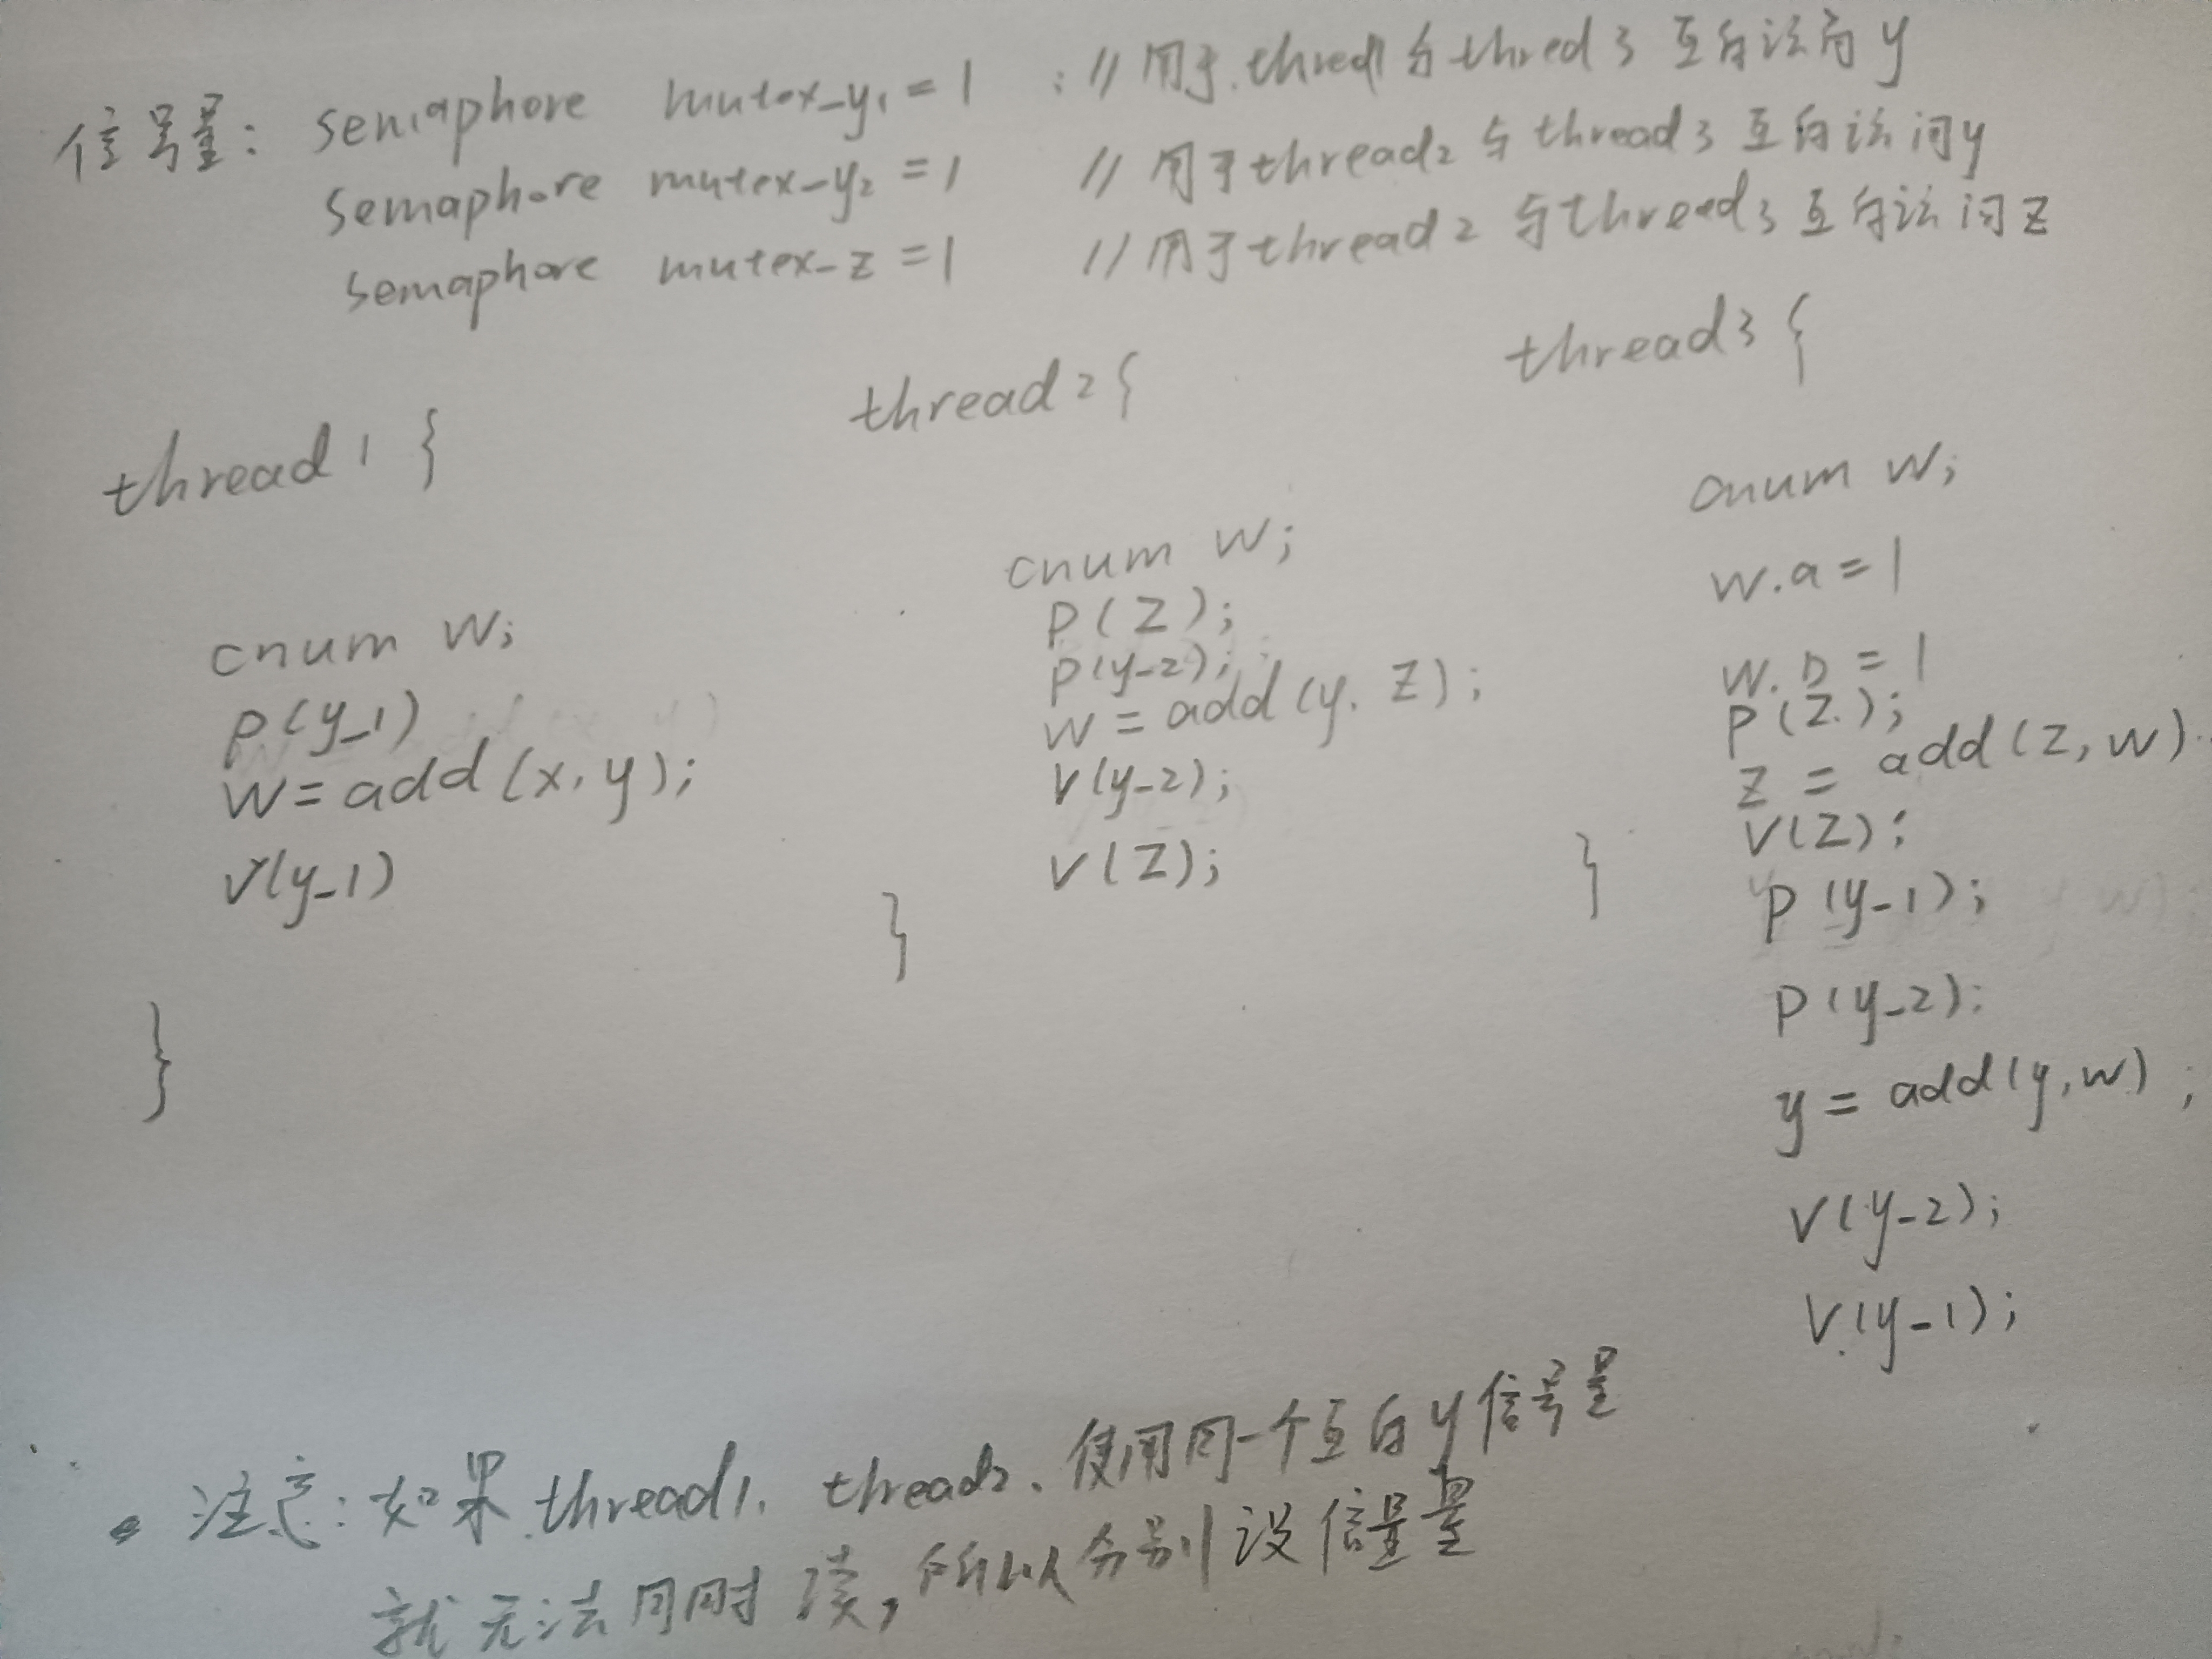 信号量: semaphore mutex-y1 = 1 ; // 用于.thred1 与 thred 3 互斥访问 y
semaphore mutex-y2 = 1 // 用于thread2 与 thread3 互斥访问y
semaphore mutex-z = 1 // 用于thread2 与thread3 互斥访问 z
thread1 {
cnum w;
p(y-1)
w = add(x, y);
v(y-1)
}
thread2{
cnum w;
p(z);
p(y-2);
w = add(y, z);
v(y-2);
v(z);
}
thread3 {
cnum w;
w.a = 1
w.b = 1
p(z.);
z = add(z, w)
v(z);
p(y-1);
p(y-2);
y = add(y, w) ;
v(y-2);
v(y-1);
}
注意: 如果 thread1. thread2. 使用同一个互斥y信号量
就无法同时读, 所以分别设信号量